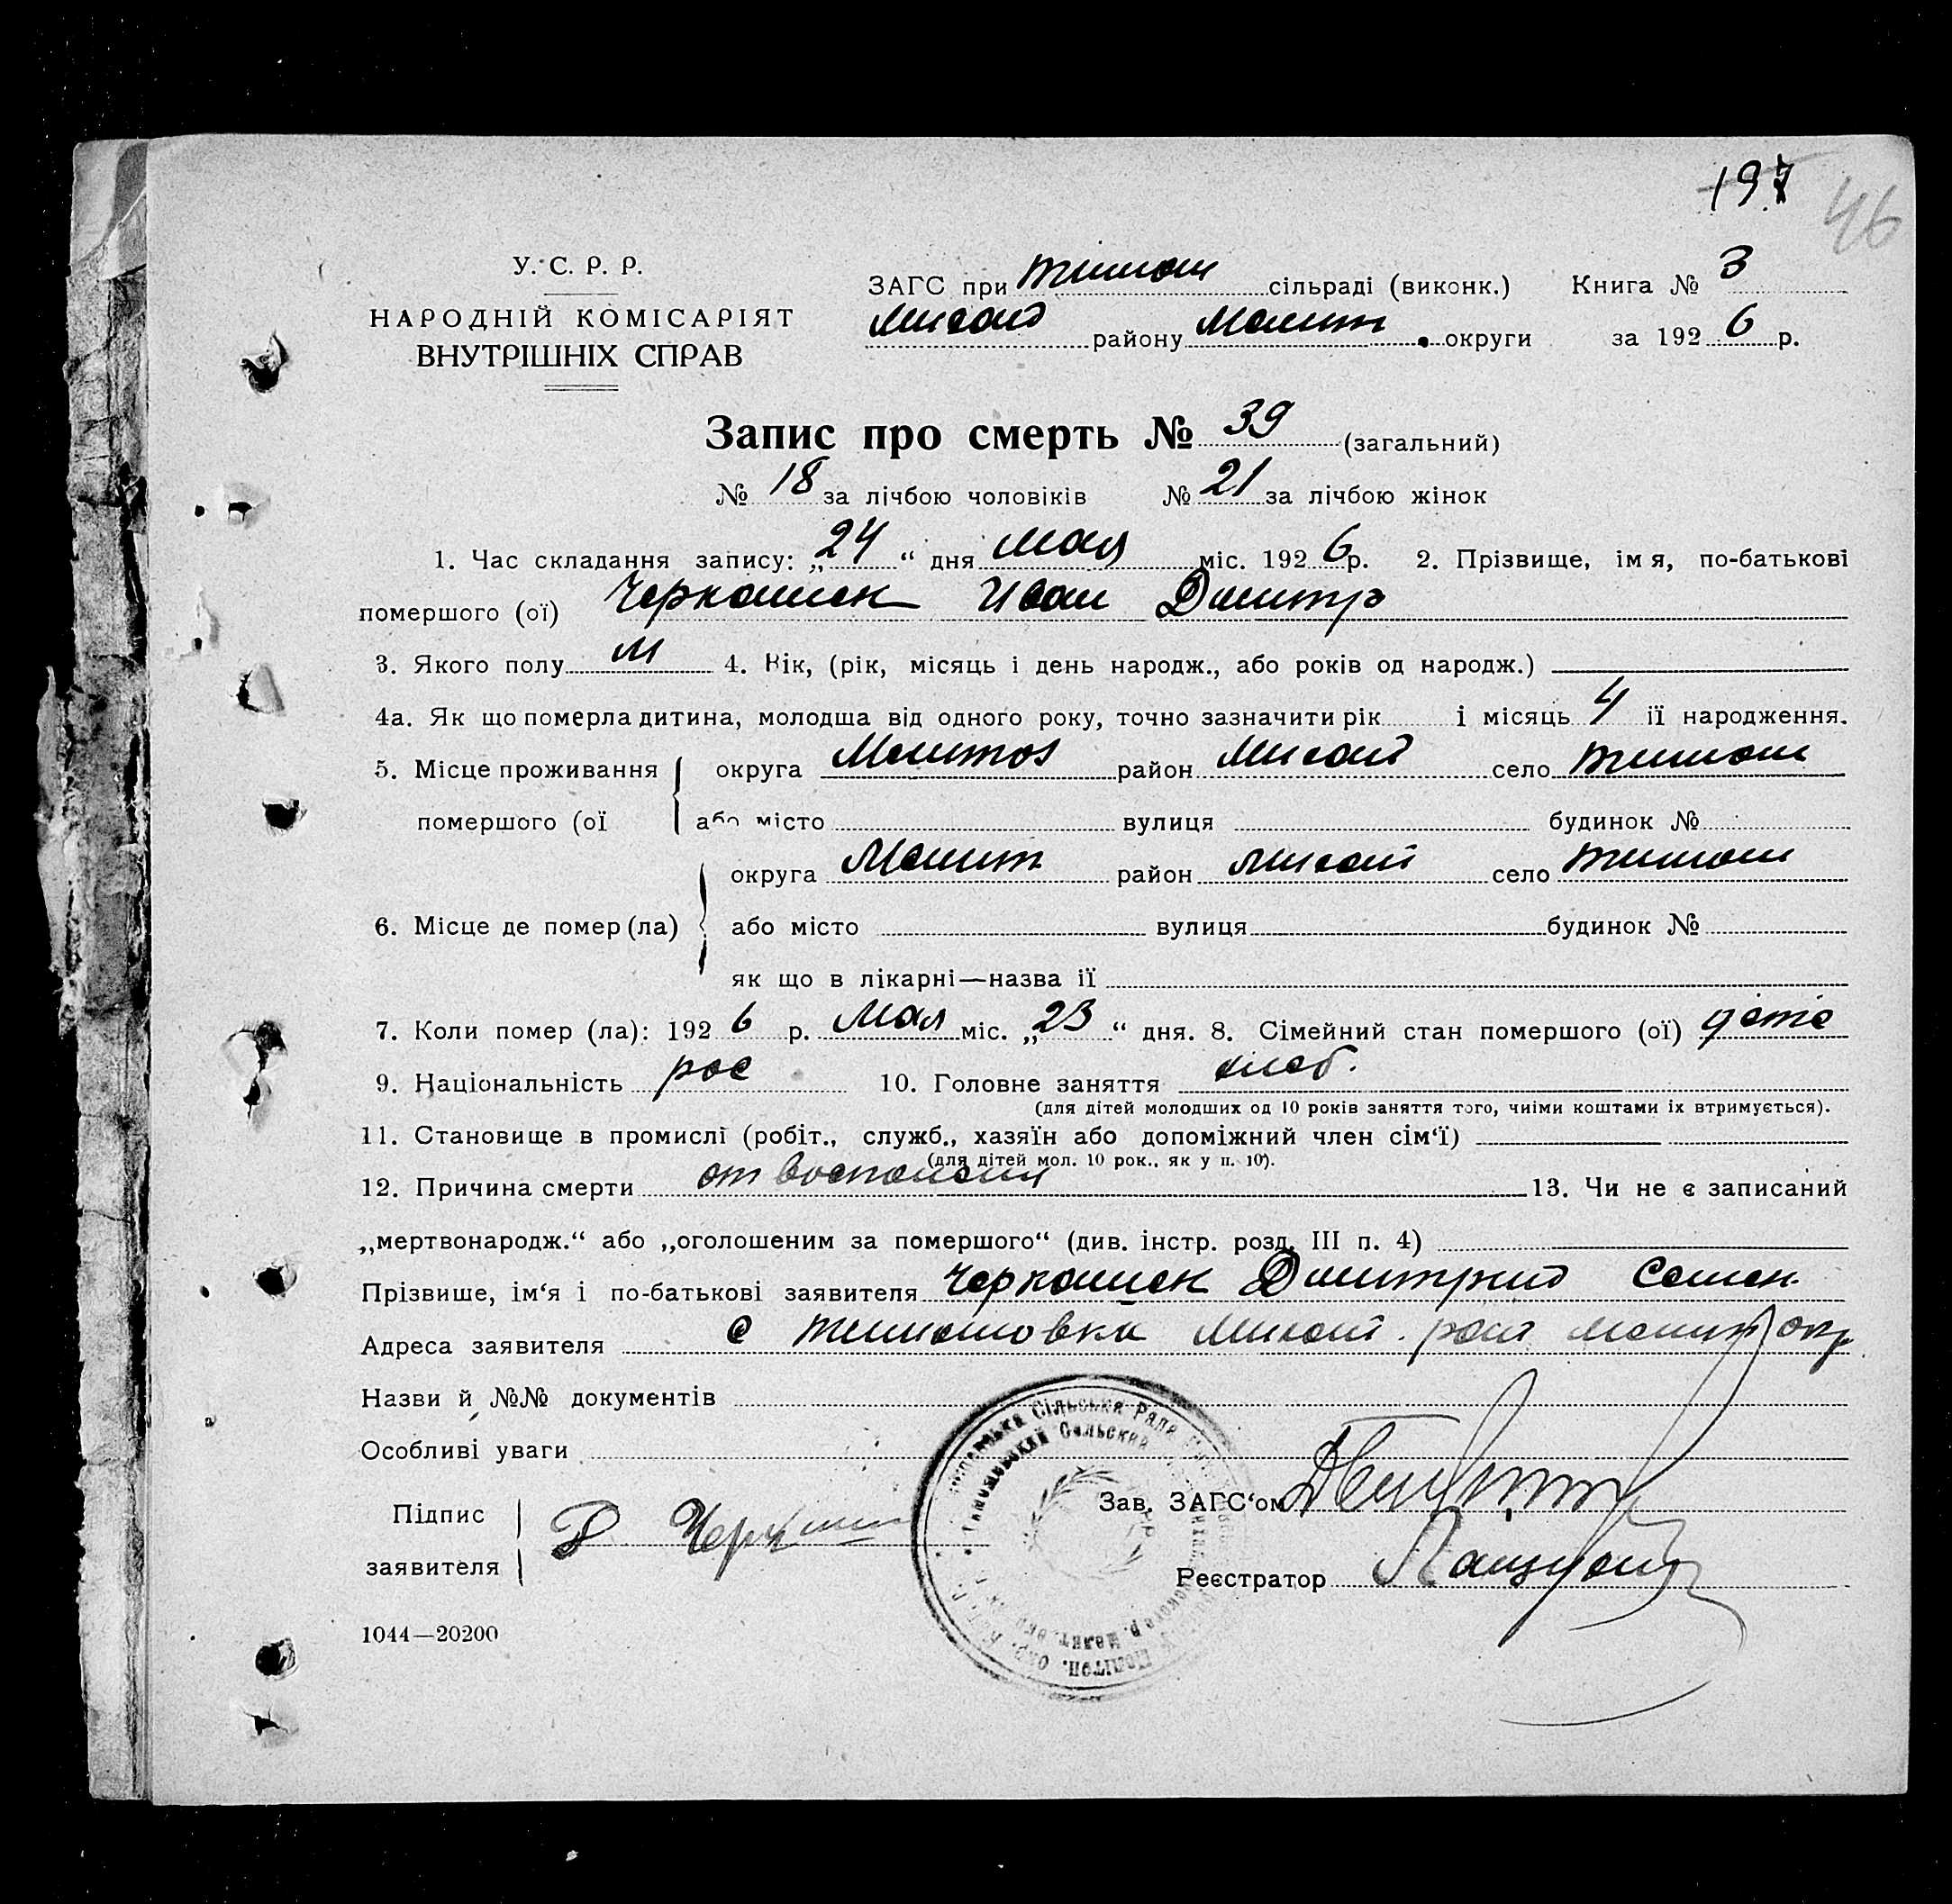 197 46
У. С. Р. Р.
НАРОДНІЙ КОМІСАРІЯТ
ВНУТРІШНІХ СПРАВ
ЗАГС при Тимош сільраді (виконк.) Книга № 3
Михайл району Мелит. округи за 1926 р.
Запис про смерть № 39 (загальний)
№ 18 за лічбою чоловіків № 21 за лічбою жінок
1. Час складання запису: „24“ дня мая міс. 1926 р. 2. Прізвище, імя, по-батькові
помершого (ої) Черкашен Иван Дмитр
3. Якого полу м 4. Вік, (рік, місяць і день народж., або років од народж.)
4а. Як що померла дитина, молодша від одного року, точно зазначити рік і місяць 4 її народження.
5. Місце проживання округа Мелитоп район Михай село Тимош
помершого (ої або місто вулиця будинок №
округа Мелит район Михай село Тимош
6. Місце де помер (ла) або місто вулиця будинок №
як що в лікарні—назва її
7. Коли помер (ла): 1926 р. мая міс. „23“ дня. 8. Сімейний стан помершого (ої) детe
9. Національність рос 10. Головне заняття хлеб.
(для дітей молодших од 10 років заняття того, чиїми коштами їх втримується).
11. Становище в промислі (робіт., служб., хазяїн або допоміжний член сім‘ї)
(для дітей мол. 10 рок., як у п. 10).
12. Причина смерти от воспаления 13. Чи не є записаний
„мертвонародж.“ або „оголошеним за помершого“ (див. інстр. розд. III п. 4)
Прізвише, ім‘я і по-батькові заявителя Черкашен Дмитрий Семен.
Адреса заявителя с Тимошовка Михай. рай Мелит окр
Назви й №№ документів
Особливі уваги
Підпис
заявителя Д. Черкаш
Зав. ЗАГС‘ом
Реєстратор
Сільська Рада
Тимошевский Сельский
1044—20200